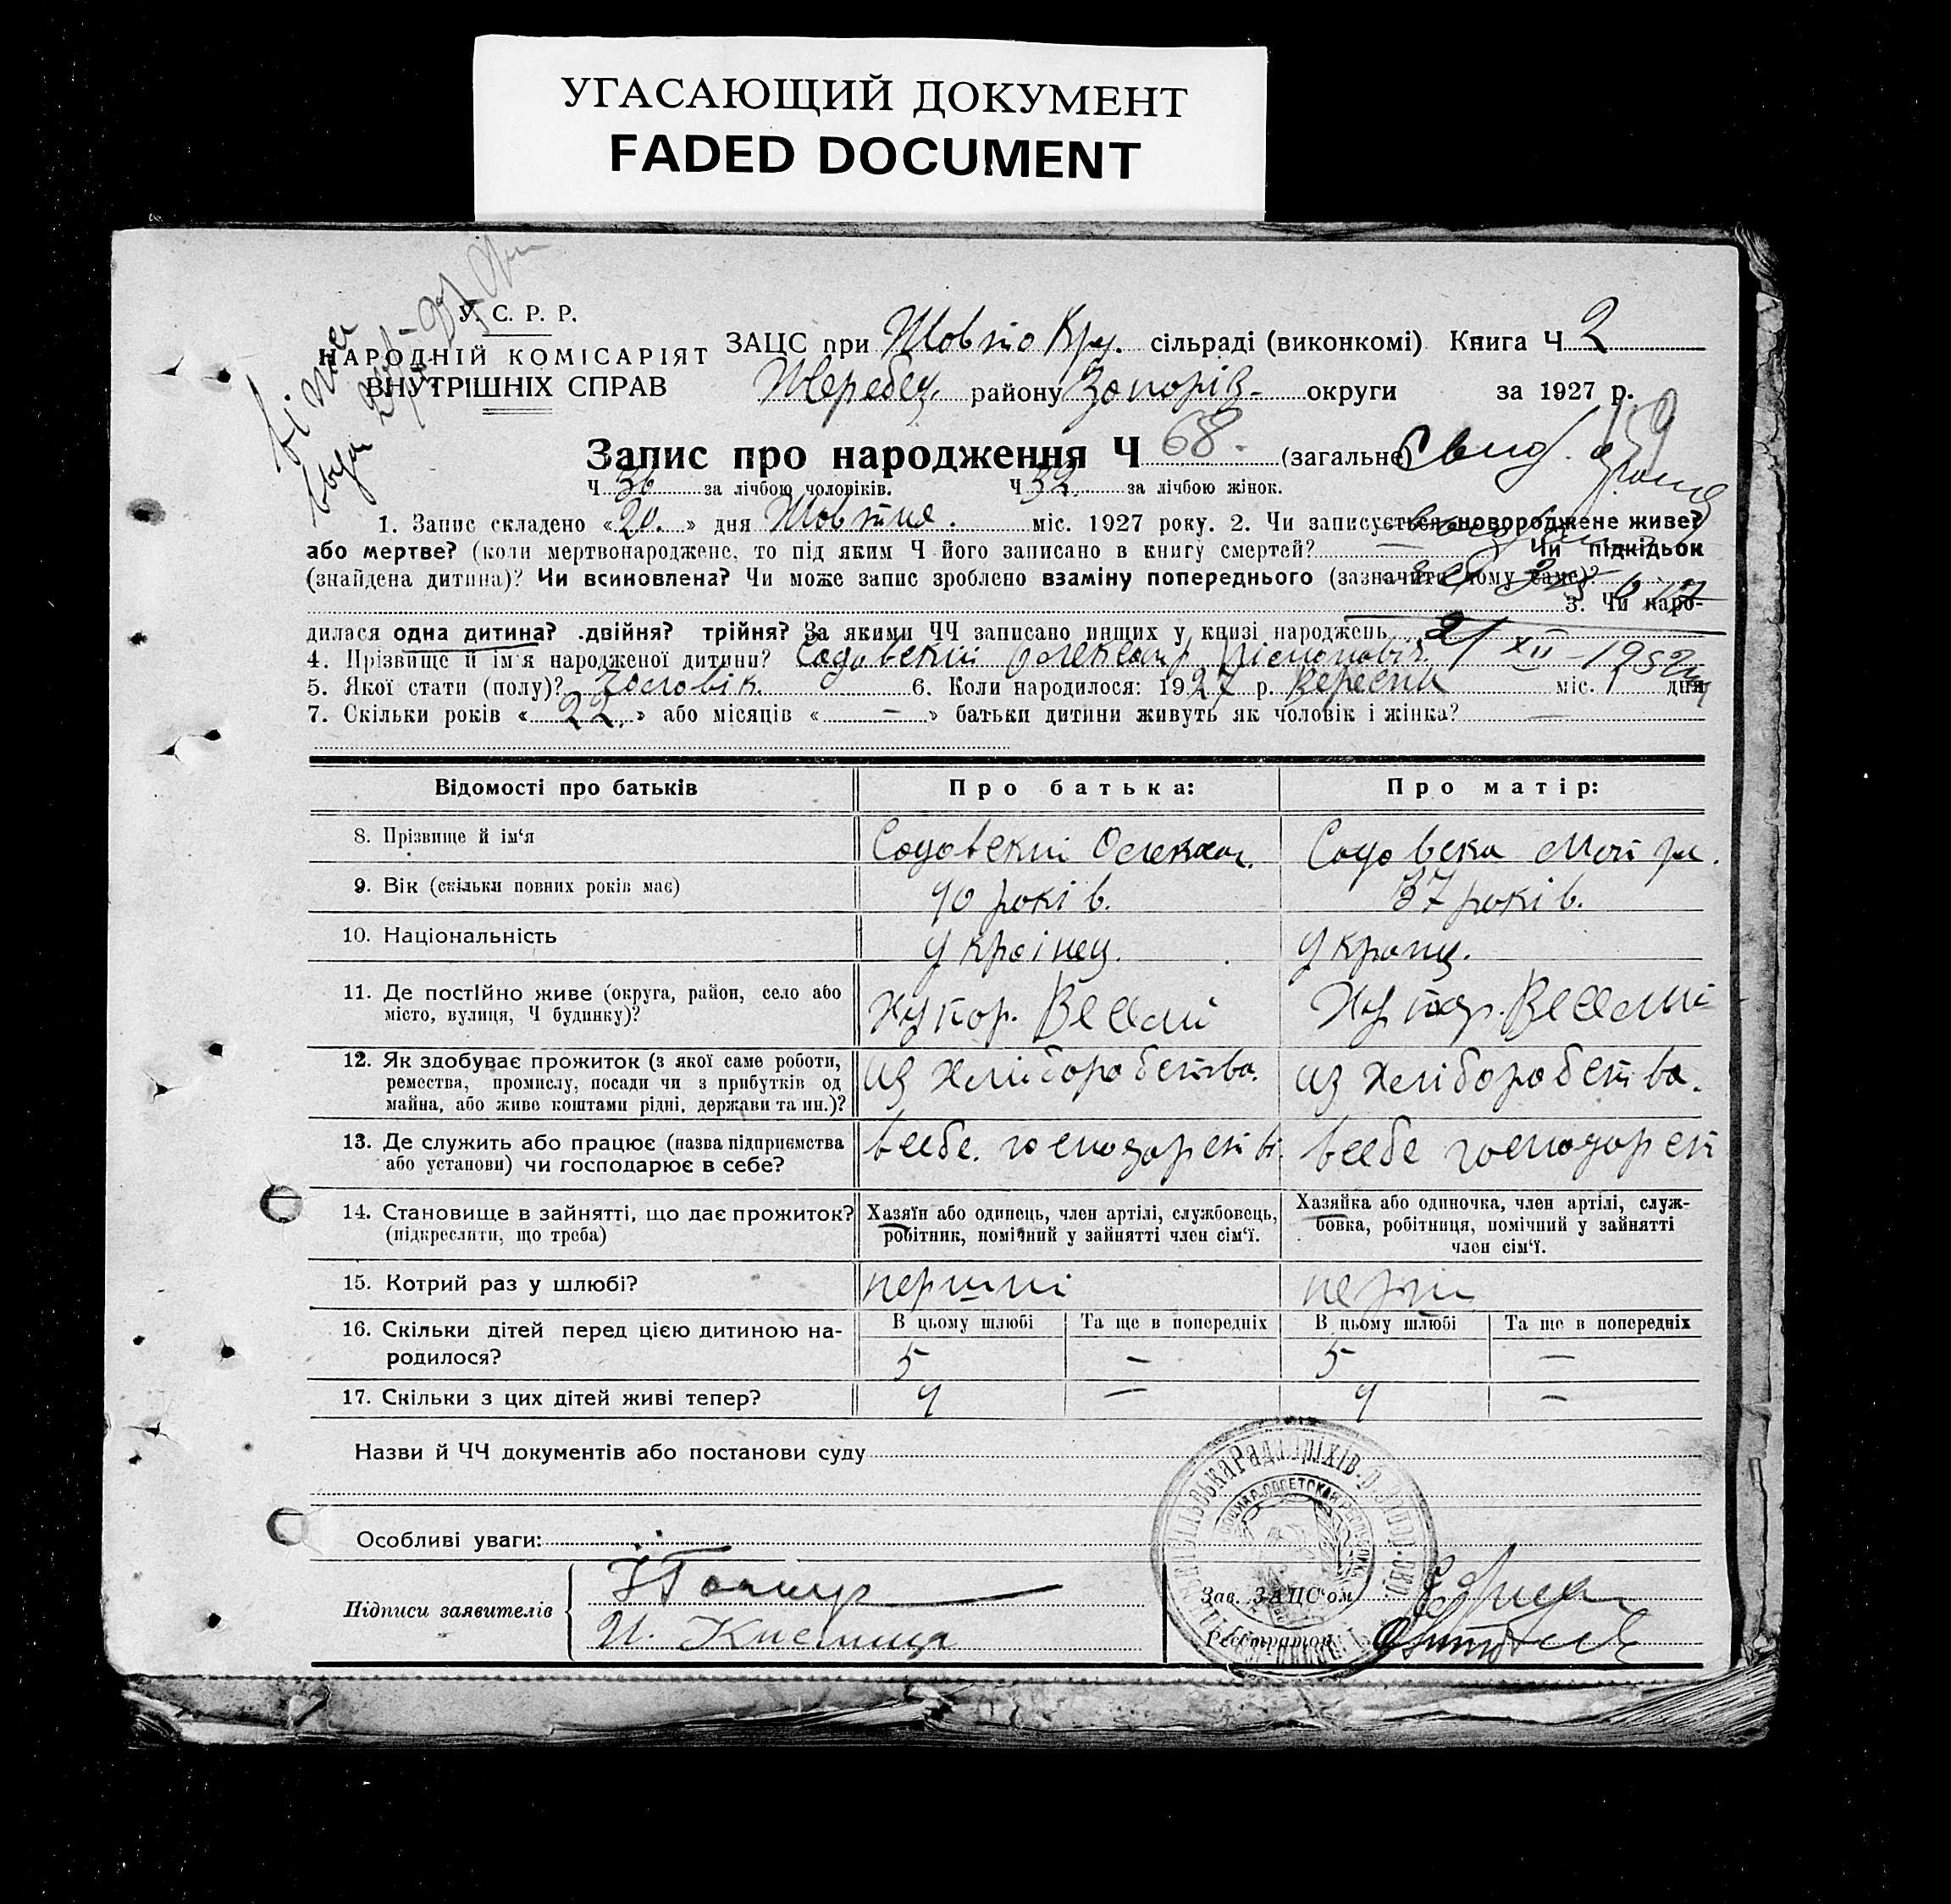 УГАСАЮЩИЙ ДОКУМЕНТ
FADED DOCUMENT
У. С. Р. Р.
НАРОДНІЙ КОМІСАРІЯТ
ВНУТРІШНІХ СПРАВ
ЗАЦС при Жовто Кру. сільраді (виконкомі) Книга Ч 2
Жеребец. району Запоріз- округи за 1927 р.
Запис про народження Ч 68 (загальне)
Ч 36 за лічбою чоловіків. Ч 32 за лічбою жінок.
1. Запис складено «20.» дня Жовтня. міс. 1927 року. 2. Чи записується новороджене живе?
або мертве? (коли мертвонароджене, то під яким Ч його записано в книгу смертей? Чи підкідьок
(знайдена дитина)? Чи всиновлена? Чи може запис зроблено взаміну попереднього (зазначити чому саме)?
3. Чи наро-
дилася одна дитина? двійня? трійня? За якими ЧЧ записано инших у книзі народжень
21 XII - 195
4. Прізвище й ім'я народженої дитини? Садовский Олександ
5. Якої стати (полу)? Чоловік. 6. Коли народилося: 1927 р. Вересня міс. 1 дня
7. Скільки років «22» або місяців «—» батьки дитини живуть як чоловік і жінка? —
Відомості про батьків Про батька: Про матір:
8. Прізвище й ім'я Садовский Олексан. Садовска Мотр.
9. Вік (скільки повних років має) 40 років. 37 років.
10. Національність Украінец. Украиц.
11. Де постійно живе (округа, район, село або місто, вулиця, Ч будинку)? Хутор. Веселий Хутор. Веселий
12. Як здобуває прожиток (з якої саме роботи, ремества, промислу, посади чи з прибутків од майна, або живе коштами рідні, держави та ин.)? из хліборобства. из хліборобства.
13. Де служить або працює (назва підприємства або установи) чи господарює в себе? всебе. господарстві. всебе господарст
14. Становище в зайнятті, що дає прожиток? (підкреслити, що треба) Хазяїн або одинець, член артілі, службовець, робітник, помічний у зайнятті член сім'ї. Хазяйка або одиночка, член артілі, служ-бовка, робітниця, помічний у зайнятті член сім'ї.
15. Котрий раз у шлюбі? перший
16. Скільки дітей перед цією дитиною на-
родилося?
В цьому шлюбі Та ще в попередніх В цьому шлюбі Та ще в попередніх
5 — 5 —
17. Скільки з цих дітей живі тепер? 4 — 4 —
Назви й ЧЧ документів або постанови суду
Особливі уваги:
Підписи заявителів
И. Книшица
Зав. ЗАЦС'ом
Реєстратор